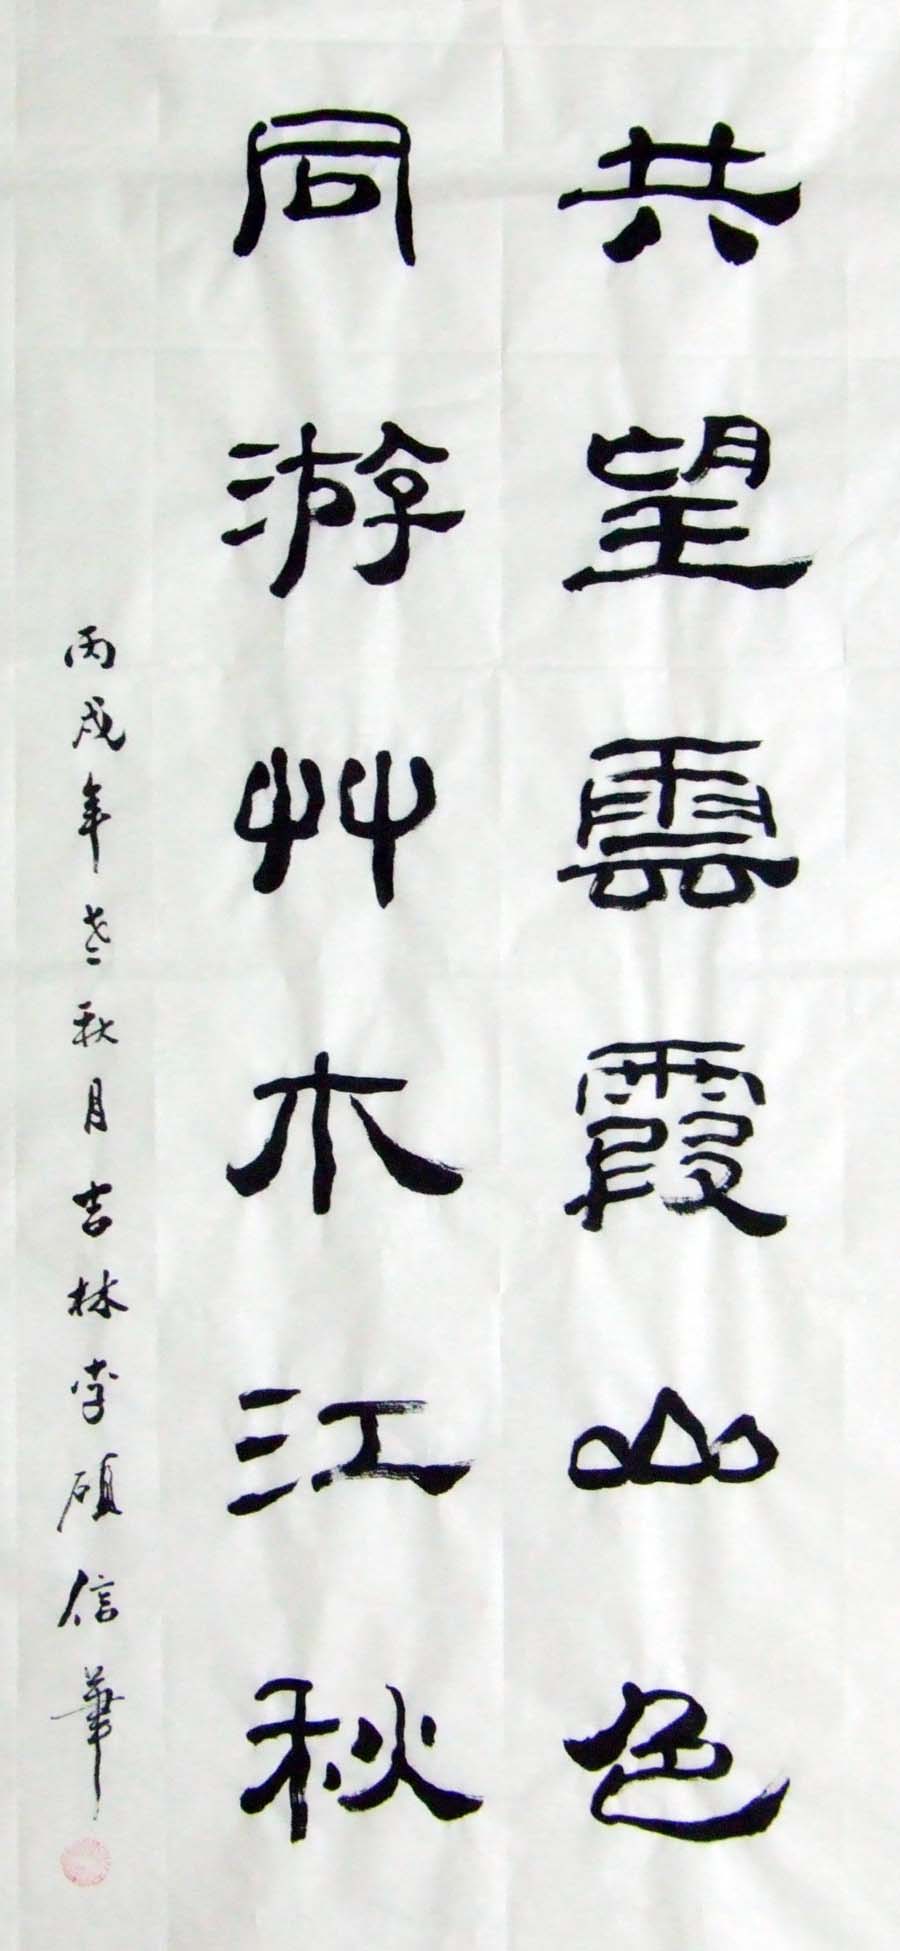 共望雲霞山色
同游艸木江秋
丙戌年秋月吉林李碩信筆